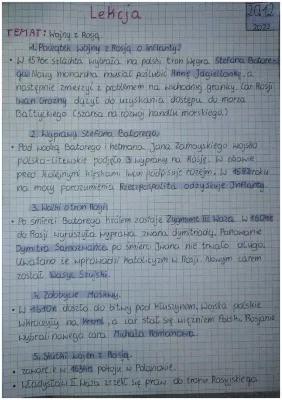 Lekcja
20.12
2022
TEMAT: Wojny z Rosją.
1. Początek wojny z Rosją o Inflanty.
• W 1576r. szlachta wybrała na polski tron węgra Stefana Batore-
go. Nowy monarcha musiał poślubić Annę Jagiellonkę, a
następnie zmierzyć z problemem na wschodniej granicy. Car Rosji
Iwan Groźny dążył do uzyskania dostępu do morza
Bałtyckiego (szansa na rozwój handlu morskiego.)
2. Wyprawy Stefana Batorego.
• Pod wodzą Batorego i hetmana Jana Zamoyskiego wojska
polsko-litewskie podjęło 3 wyprawy na Rosję. W obawie
przed kolejnymi klęskami Iwan podpisuje rozejm. W 1582 roku
na mocy porozumienia Rzeczpospolita odzyskuje Inflanty.
3. Walki o tron Rosji
• Po śmierci Batorego królem zostaje Zygmunt III Waza. W 1604r
do Rosji wyruszyła wyprawa zwana dymitriadą. Panowanie
Dymitra Samozwańca po śmierci Iwana nie trwało długo.
Uważano że wprowadzi katolicyzm w Rosji. Nowym carem
został Wasyl Szujski.
4. Zdobycie Moskwy.
• W 1610r doszło do bitwy pod Kłuszynem. Wojska polskie
wkroczyły na Kreml, a car stał się więźniem Polski. Rosjanie
wybrali nowego cara Michała Romanowa.
5. Skutki wojen z Rosją.
• zawarcie w 1634r pokoju w Polanowie.
• Władysław II Waza zrzekł się praw do tronu Rosyjskiego.